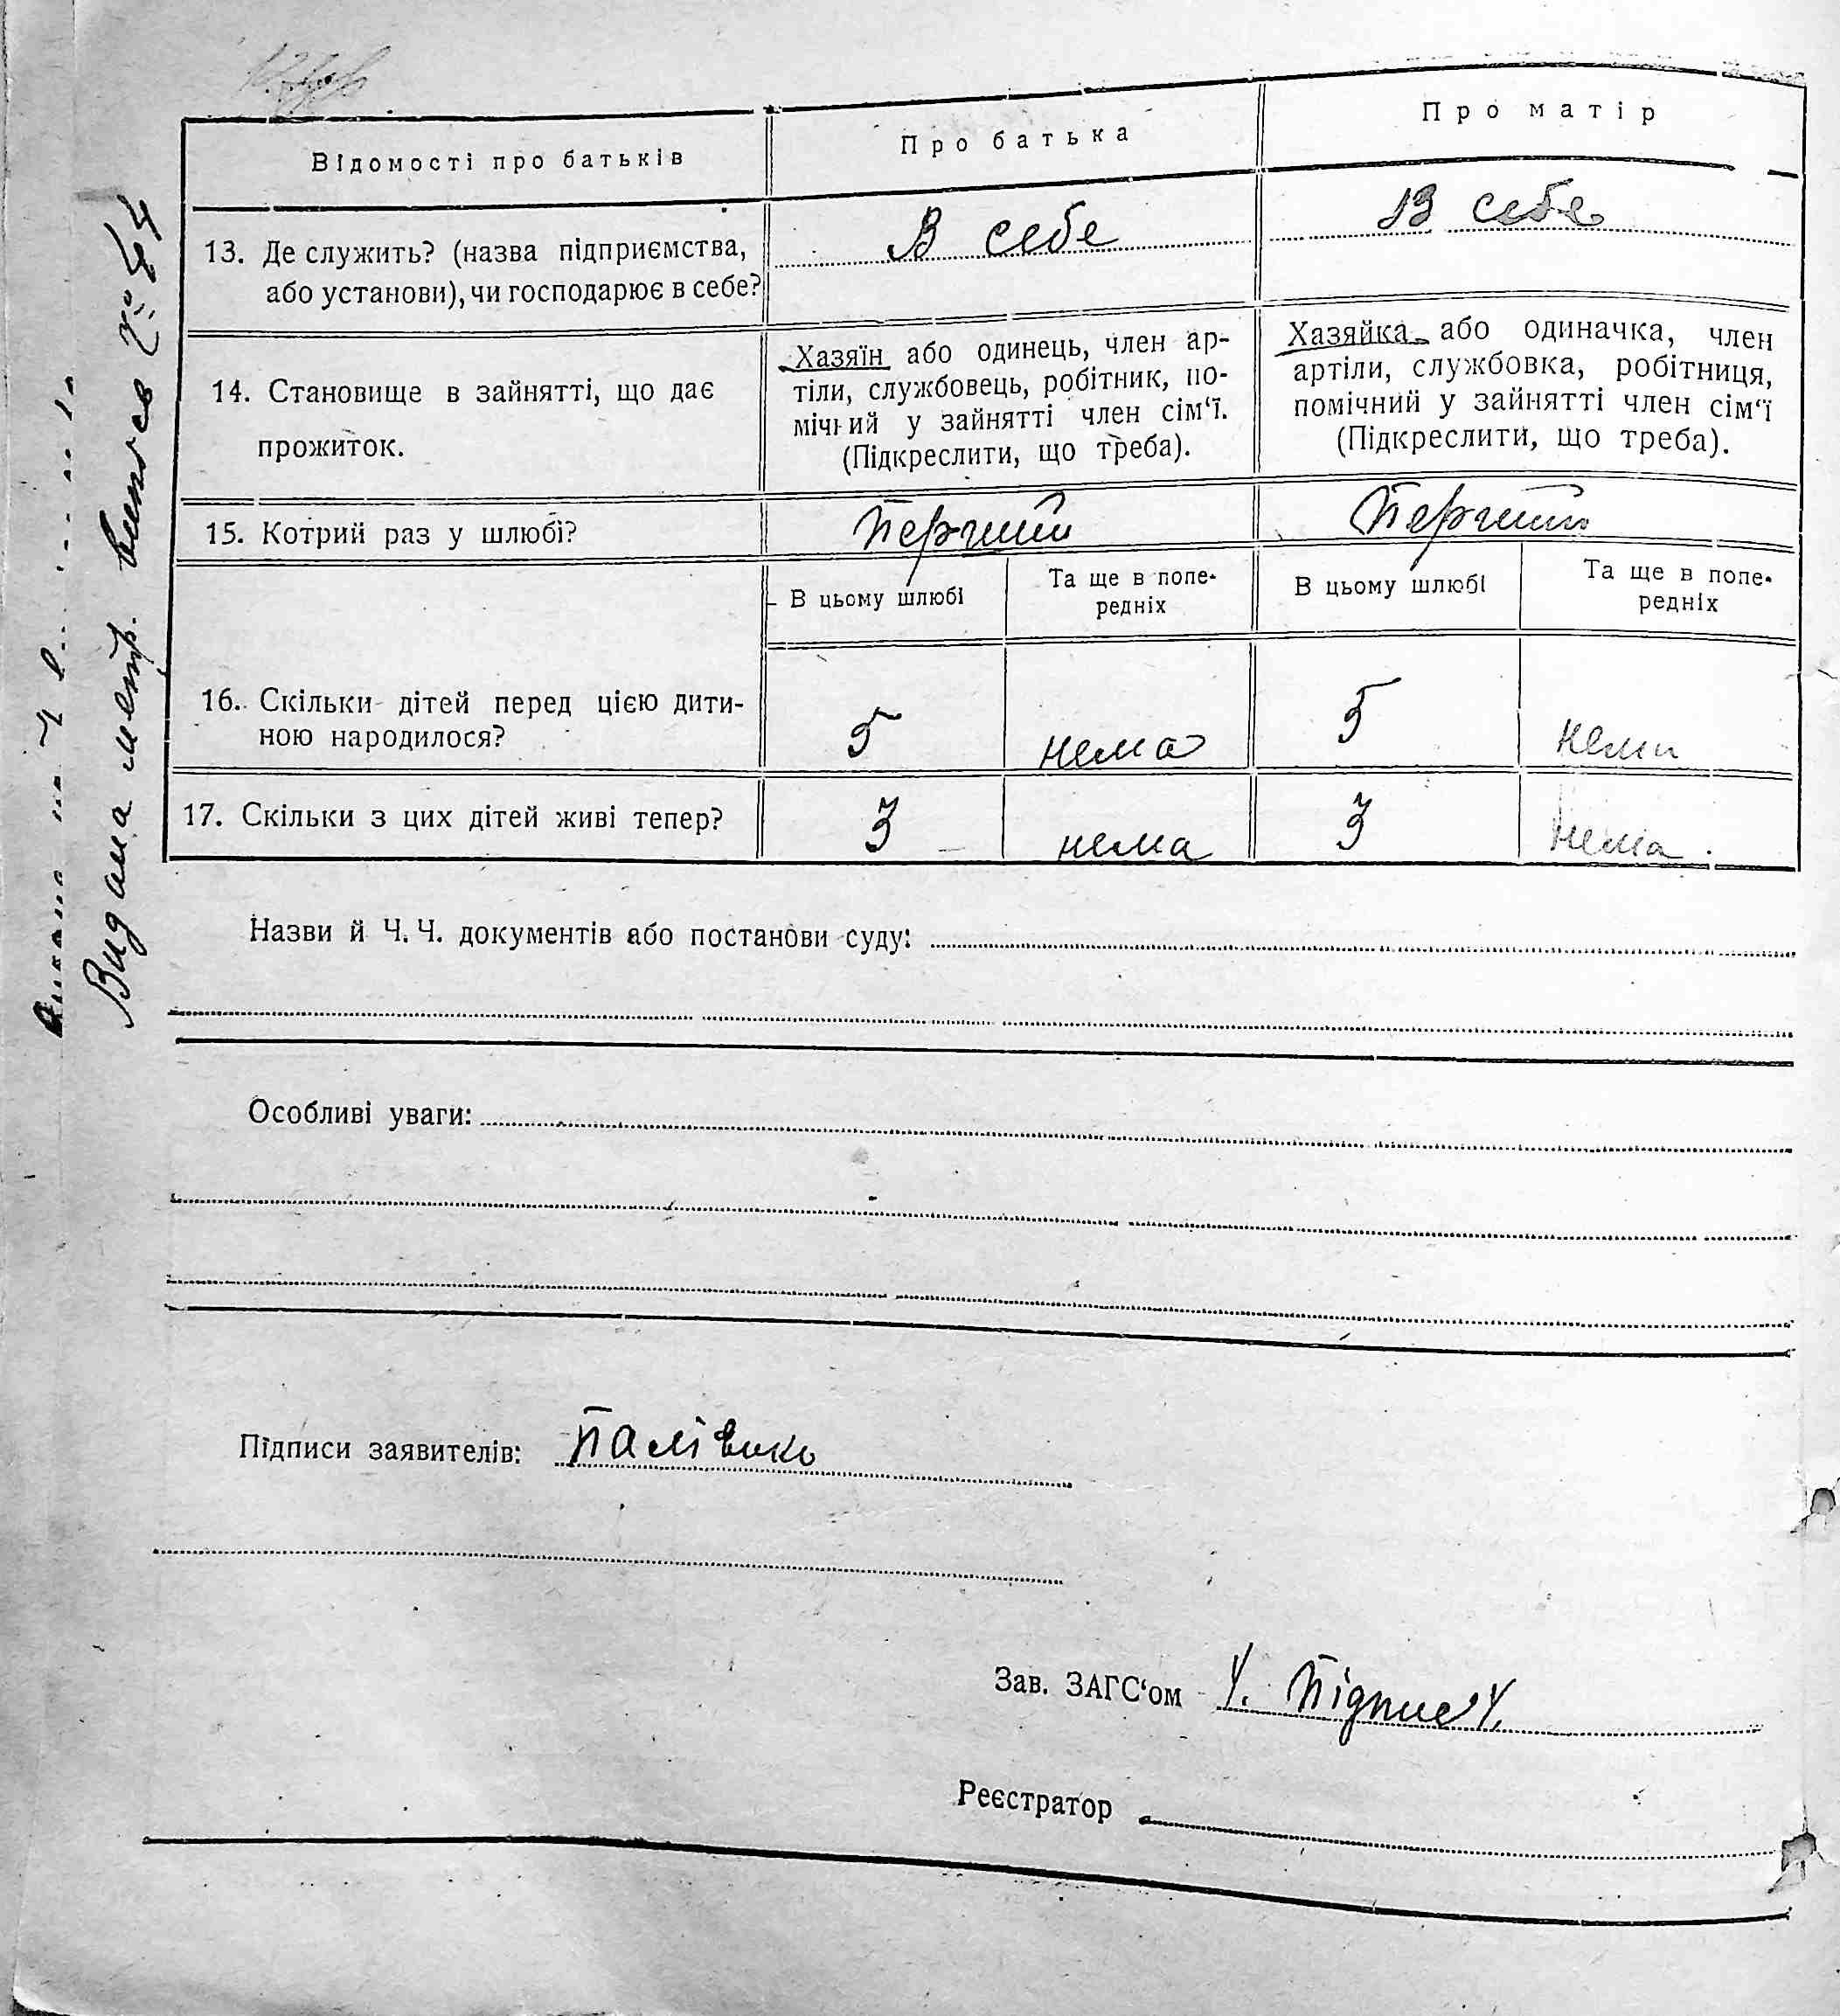 Відомості про батьків
Про батька
Про матір
13. Де служить? (назва підприємства,
або установи), чи господарює в себе?
В себе
В себе
14. Становище в зайнятті, що дає
прожиток.
Хазяїн або одинець, член ар-
тіли, службовець, робітник, по-
мічний у зайнятті член сім'ї.
(Підкреслити, що треба).
Хазяйка або одиначка, член
артіли, службовка, робітниця,
помічний у зайнятті член сім'ї
(Підкреслити, що треба).
15. Котрий раз у шлюбі?
Перший
Перший
В цьому шлюбі
Та ще в попе-
редніх
В цьому шлюбі
Та ще в попе-
редніх
16. Скільки дітей перед цією дити-
ною народилося?
5
нема
5
нема
17. Скільки з цих дітей живі тепер?
3
нема
3
нема
Назви й Ч. Ч. документів або постанови суду:
Особливі уваги:
Підписи заявителів:
Зав. ЗАГС'ом Підпис
Реєстратор
Видана метр.